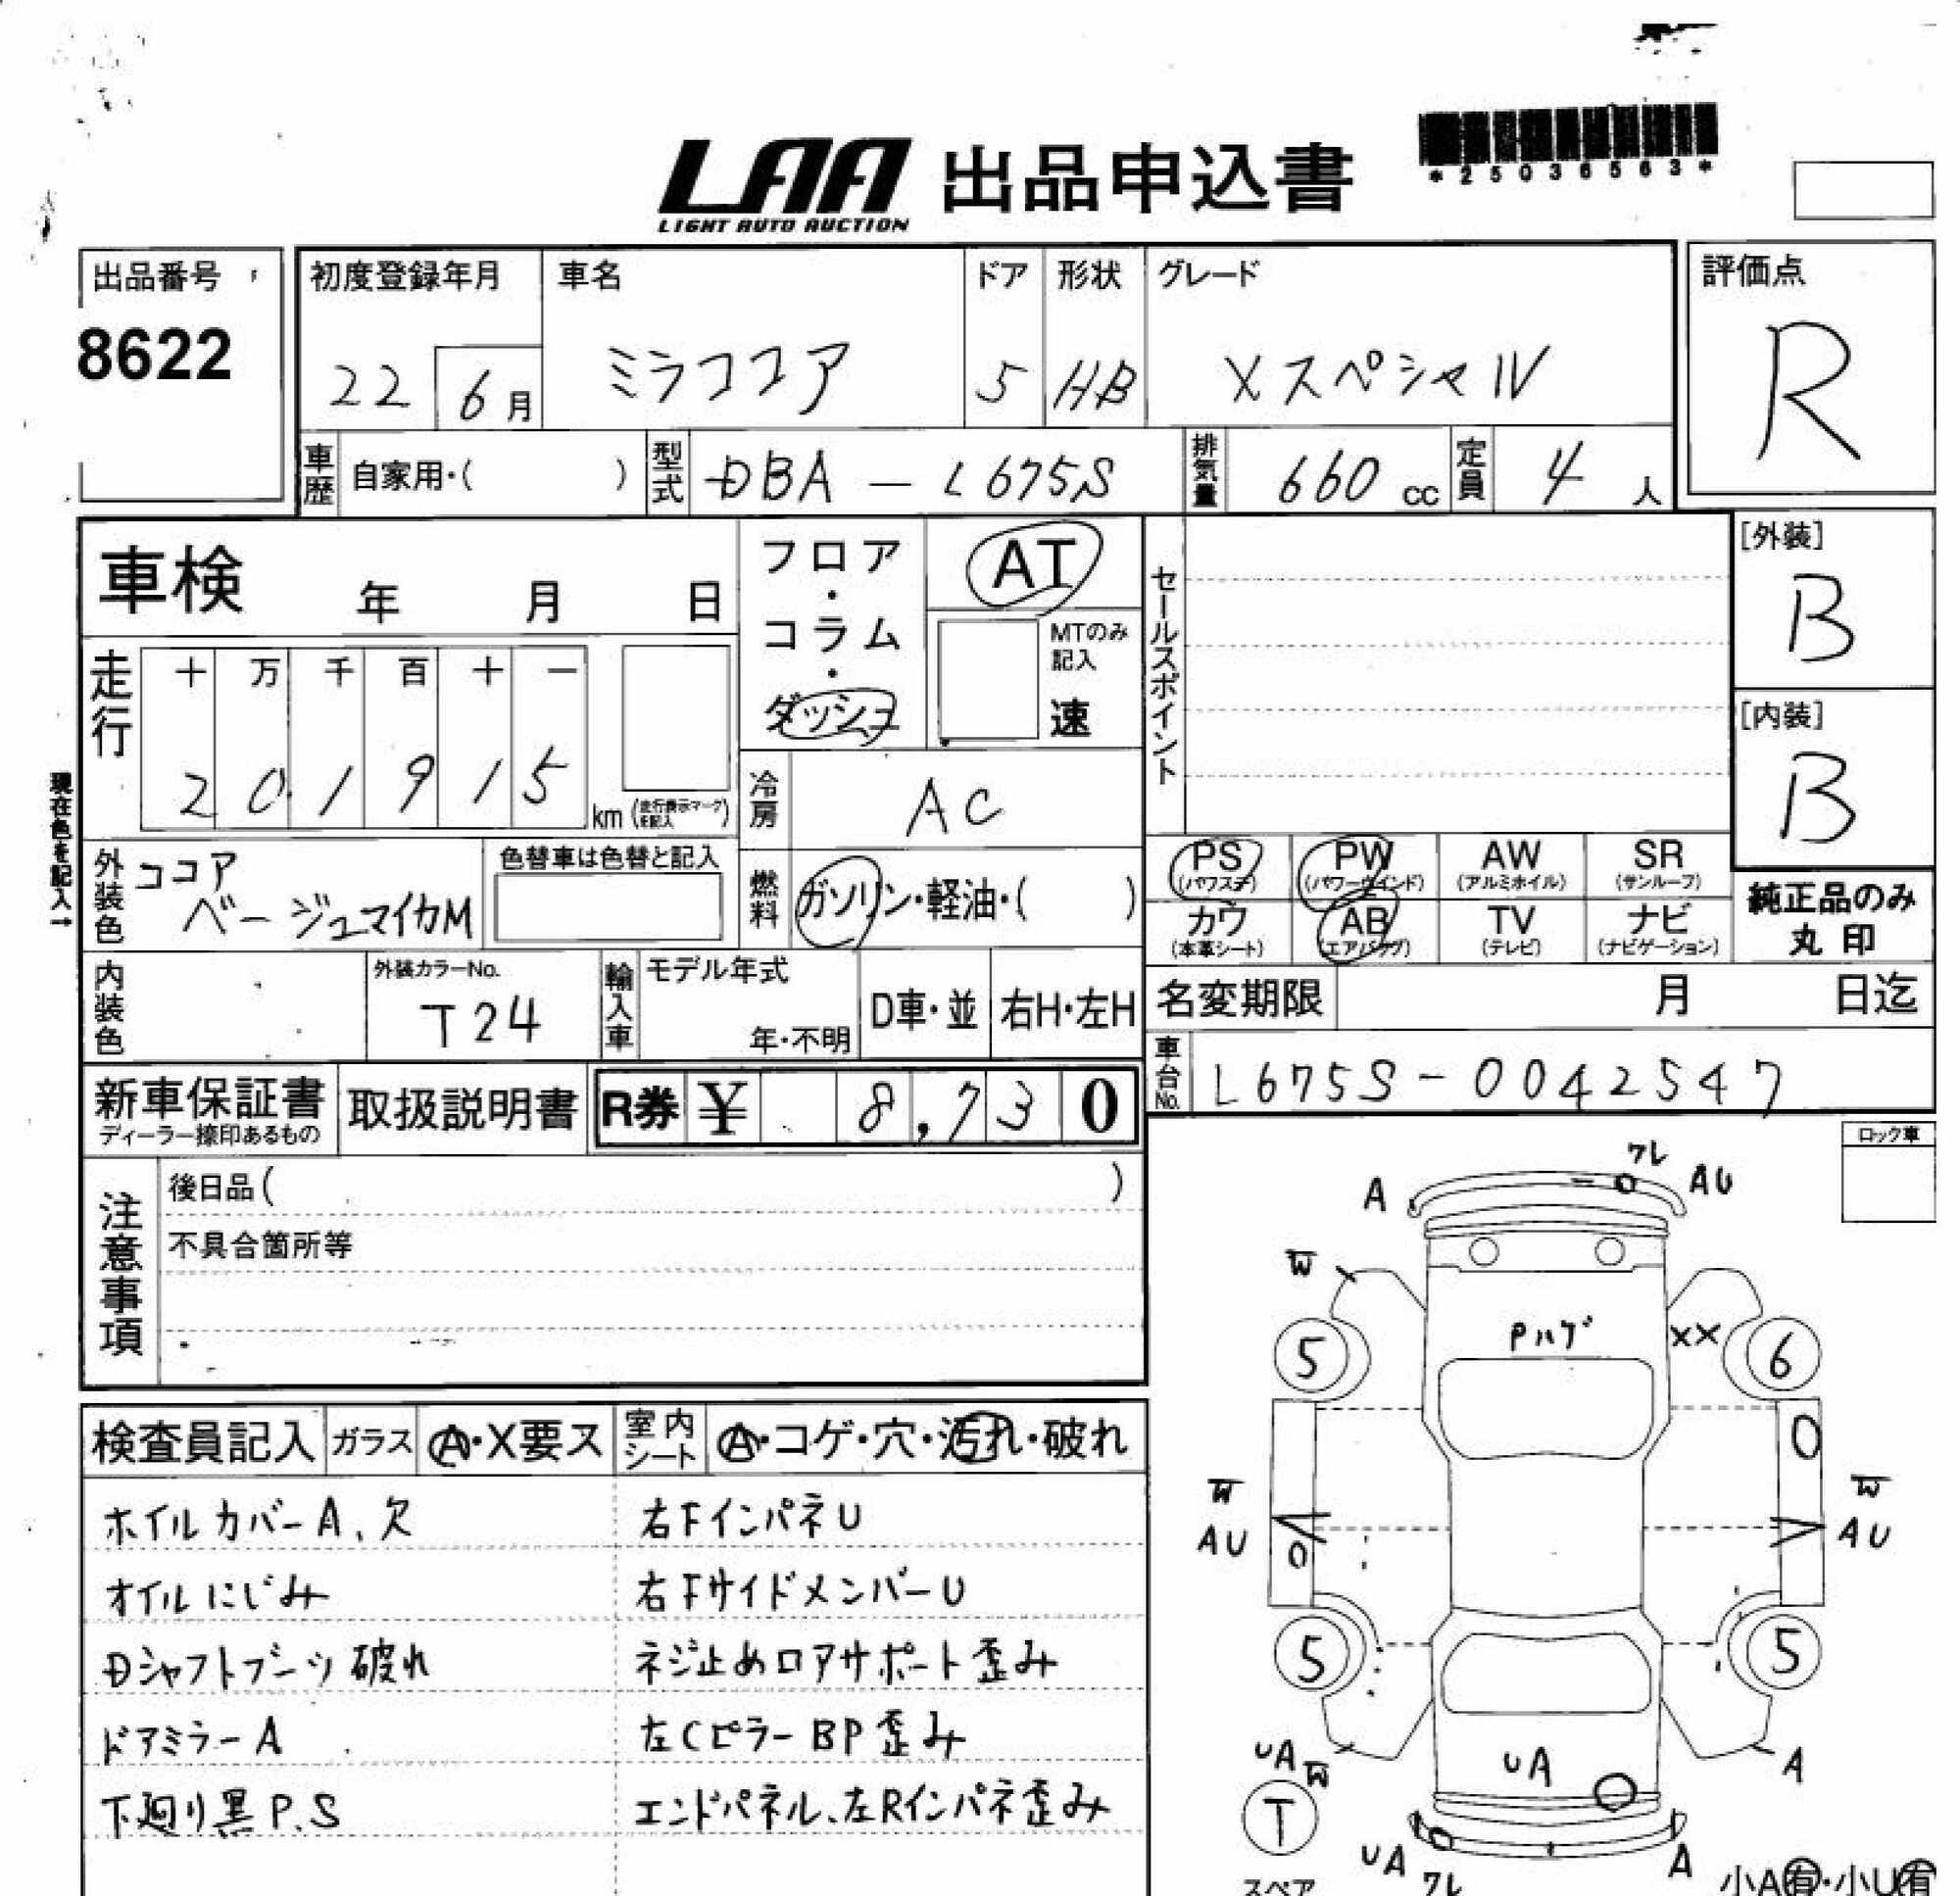 LAA 出品申込書
LIGHT AUTO AUCTION
*25036563*
出品番号
8622
初度登録年月 車名 ドア 形状 グレード
22 6月 ミラココア 5 HB Xスペシャル
評価点
R
車歴 自家用・( ) 型式 DBA - L675S 排気量 660 cc 定員 4 人
車検 年 月 日
フロア・コラム・ダッシュ
AT
MTのみ記入
速
セールスポイント
[外装]
B
[内装]
B
走行 十 万 千 百 十 一
2 0 1 9 1 5 km (走行表示マークを記入)
冷房 AC
現在色を記入→
外装色 ココア
ベージュマイカM
色替車は色替と記入
燃料 ガソリン・軽油・( )
PS (パワステ) PW (パワーウインド) AW (アルミホイル) SR (サンルーフ)
カワ (本革シート) AB (エアバッグ) TV (テレビ) ナビ (ナビゲーション)
純正品のみ
丸印
内装色
外装カラーNo.
T24
輸入車 モデル年式
年・不明
D車・並 右H・左H
名変期限 月 日迄
車台No. L675S-0042547
新車保証書
ディーラー捺印あるもの
取扱説明書
R券 ¥ 8,730
注意事項
後日品( )
不具合箇所等
ロック車
ワレ
A AU
W
Pハゲ
XX
5 6
W W
AU AU
5 5
UA W
UA
A
T
スペア
UA ワレ A
小A有・小U有
検査員記入 ガラス A・X要ス 室内シート A・コゲ・穴・汚れ・破れ
ホイルカバーA、欠 右FインパネU
オイルにじみ 右FサイドメンバーU
Dシャフトブーツ破れ ネジ止めロアサポート歪み
ドアミラーA 左CピラーBP歪み
下廻り黒P.S エンドパネル、左Rインパネ歪み